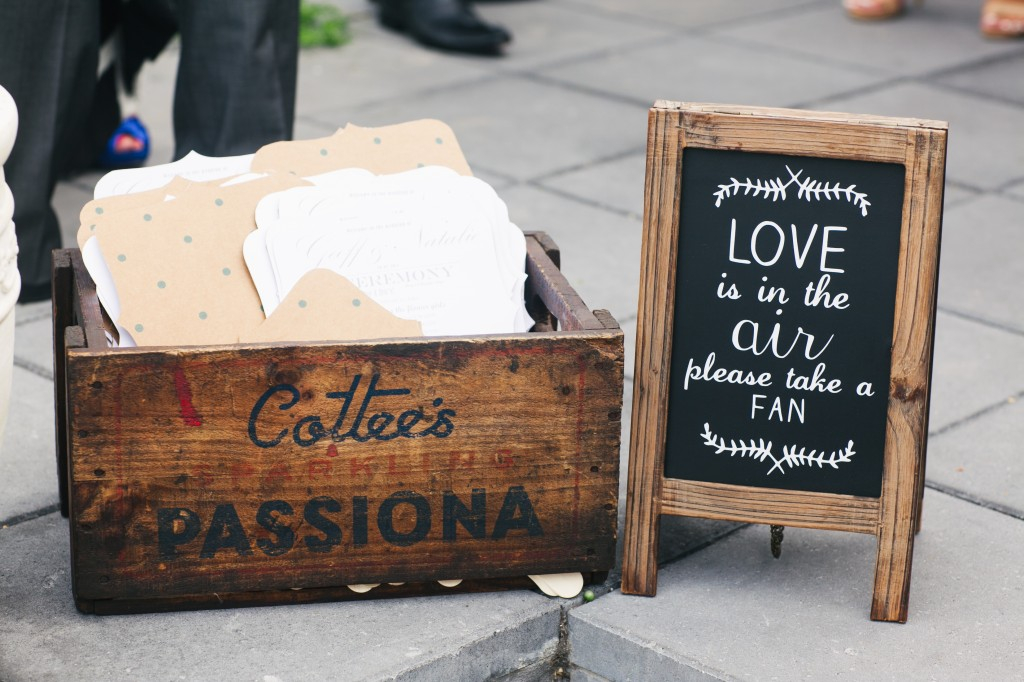 Geoff & Natalie
CEREMONY
Cottee's
SPARKLING
PASSIONA
LOVE
is in the
air
please take a
FAN